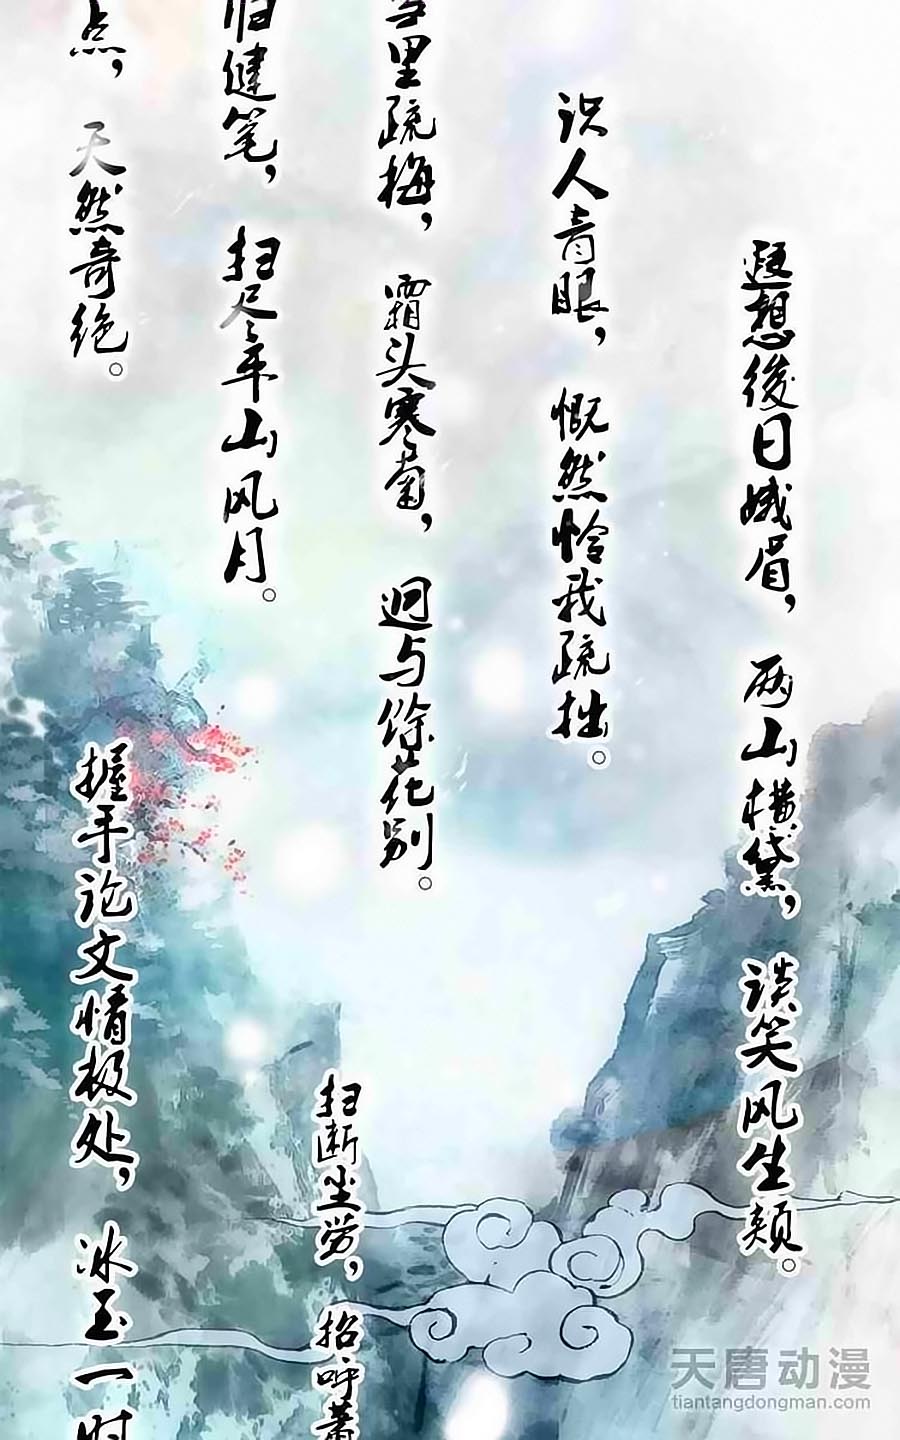 遐想後日娥眉，两山横黛，谈笑风生颊。
识人青眼，慨然怜我疏拙。
里疏梅，霜头寒菊，迥与馀花别。
扫断尘劳，招呼萧
归健笔，扫尽平山风月。
点，天然奇绝。
握手论文情极处，冰玉一时
天唐动漫
tiantangdongman.com